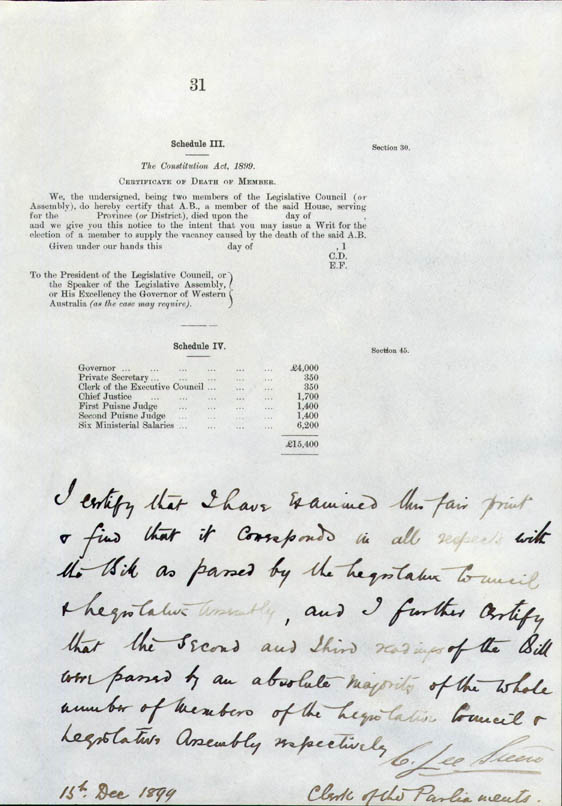 31
Schedule III.
Section 30.
The Constitution Act, 1899.
CERTIFICATE OF DEATH OF MEMBER.
We, the undersigned, being two members of the Legislative Council (or
Assembly), do hereby certify that A.B., a member of the said House, serving
for the Province (or District), died upon the day of ,
and we give you this notice to the intent that you may issue a Writ for the
election of a member to supply the vacancy caused by the death of the said A.B.
Given under our hands this day of , 1
C.D.
E.F.
To the President of the Legislative Council, or
the Speaker of the Legislative Assembly,
or His Excellency the Governor of Western
Australia (as the case may require).
Schedule IV.
Section 45.
Governor ... ... ... ... ... £4,000
Private Secretary ... ... ... ... ... 350
Clerk of the Executive Council ... ... ... 350
Chief Justice ... ... ... ... 1,700
First Puisne Judge ... ... ... ... 1,400
Second Puisne Judge ... ... ... ... 1,400
Six Ministerial Salaries ... ... ... ... 6,200
£15,400
I certify that I have examined this fair print
& find that it corresponds in all respects with
the Bill as passed by the Legislative Council
& Legislative Assembly, and I further certify
that the Second and Third readings of the Bill
were passed by an absolute majority of the whole
number of Members of the Legislative Council &
Legislative Assembly respectively
C. Lee Steere
15th Dec 1899
Clerk of the Parliaments.